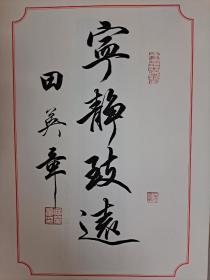 寧静致遠
田英章